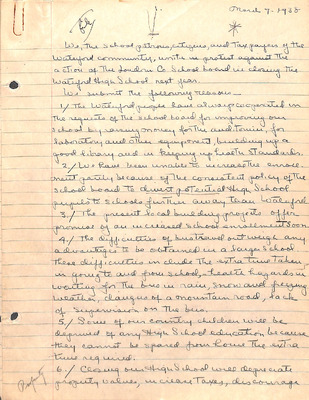 March 9, 1938
We, the School patrons, citizens, and Tax payers of the
Waterford community, unite in protest against the
action of the Loudoun Co. School board in closing the
Waterford High School next year.
We submit the following reasons –
1/ The Waterford people have always cooperated in
the requests of the school board for improving our
school by raising money for the auditorium, for
laboratory and other equipment, building up a
good library and in keeping up health standards.
2/ We have been unable to increase the enroll-
ment partly because of the consistent policy of the
school board to divert potential High School
pupils to schools further away than Waterford.
3/ The present local building projects offer
promise of an increased school enrollment soon.
4/ The difficulties of bus travel outweigh any
advantages to be obtained in a larger School
these difficulties include the extra time taken
in going to and from school, health hazards in
waiting for the bus in rain, snow and freezing
weather, dangers of a mountain road, lack
of supervision on the bus.
5/ Some of our country children will be
deprived of any High School education because
they cannot be spared from home the extra
time required.
6/ Closing our High School will depreciate
property values, increase taxes, discourage